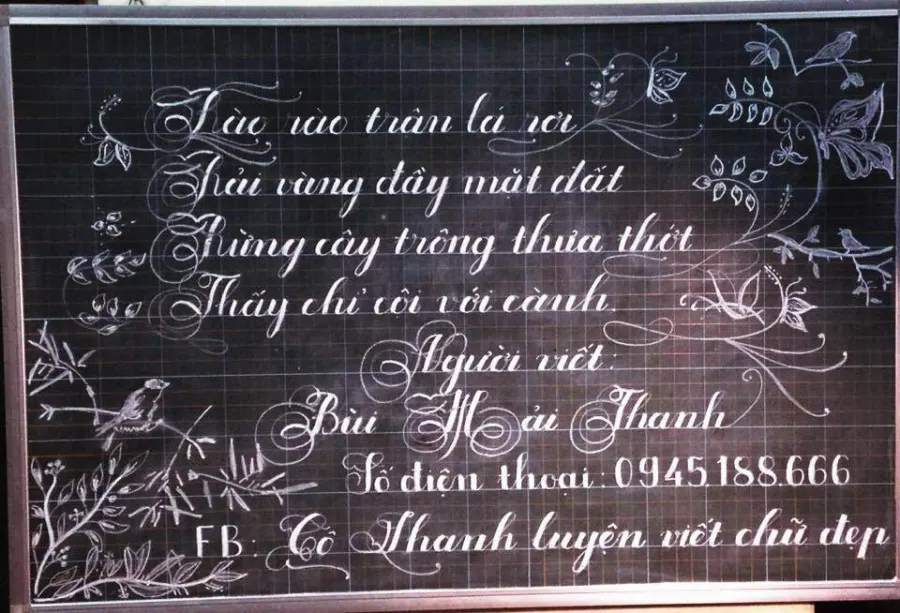 Rào rào trận lá rơi
Trải vàng đầy mặt đất
Rừng cây trông thưa thớt
Thấy chỉ cội với cành.
Người viết:
Bùi Hải Thanh
Số điện thoại: 0945.188.666
FB: Cô Thanh luyện viết chữ đẹp